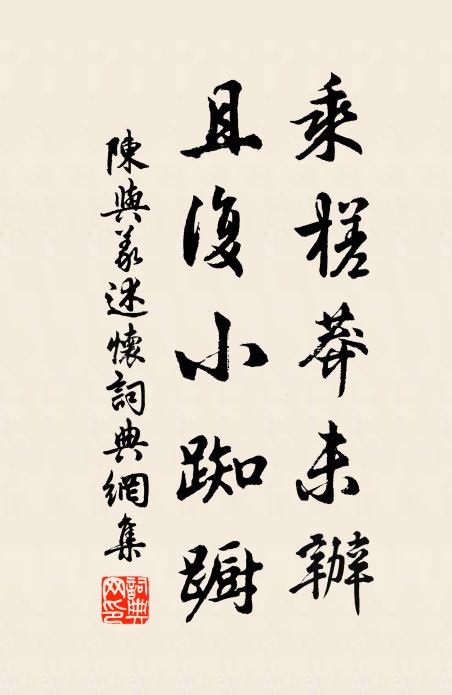 乘槎莽未辦
且復小踟躕
陳與義述懷詞典網集
詞典网印